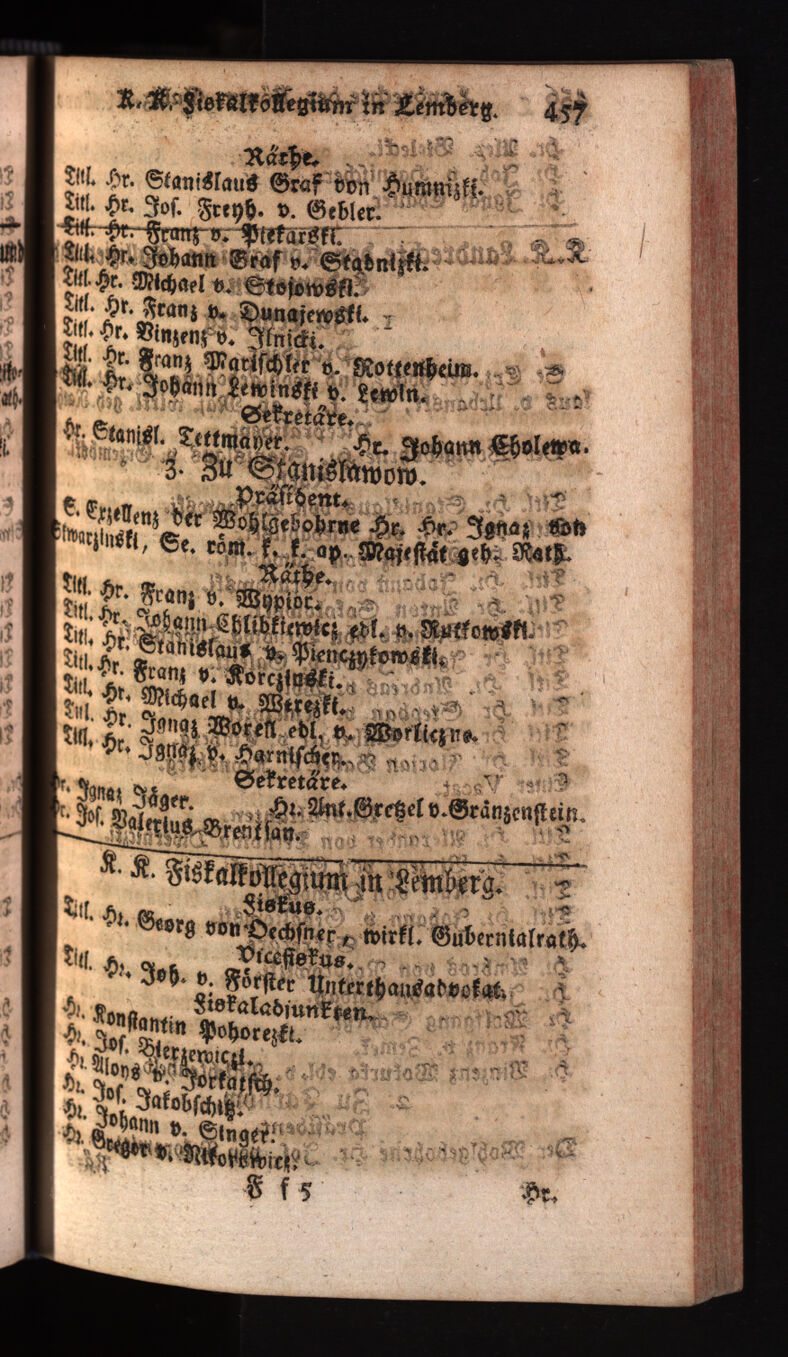 K. K. Fiskalkollegium in Lemberg. 457
Räthe.
Titl. Hr. Stanislaus Graf von Humnizki.
Titl. Hr. Jos. Freyh. v. Gebler.
Titl. Hr. Franz v. Piekarski.
Titl. Hr. Johann Graf v. Stadnizki.
Titl. Hr. Michael v. Stojowski.
Titl. Hr. Franz v. Dunajewski.
Titl. Hr. Vinzenz v. Ilnicki.
Titl. Hr. Franz Marischler v. Rottenheim.
Titl. Hr. Johann Lewinski v. Lewin.
Sekretäre.
Hr. Stanisl. Tettmayer. Hr. Johann Cholewa.
3. Zu Stanislawow.
Präsident.
S. Exzellenz der Wohlgebohrne Hr. Hr. Ignaz von
Se. röm. k. k. ap. Majestät geh. Rath.
Räthe.
Titl. Hr. Franz v. Wypior.
Titl. Hr. Johann Chlibkiewicz edl. v. Rutkowski.
Titl. Hr. Stanislaus v. Pienczykowski.
Titl. Hr. Franz v. Korczinski.
Titl. Hr. Michael v. Werezki.
Titl. Hr. Ignaz Worell edl. v. Worliczne.
Titl. Hr. Ignaz v. Harnischer.
Sekretäre.
Hr. Ignaz Jäger. Hr. Ant. Gretzel v. Gränzenstein.
Hr. Jos. Valerius Brentsan.
K. K. Fiskalkollegium in Lemberg.
Fiskus.
Titl. Hr. Georg von Oechsner, wirkl. Gubernialrath.
Vicefiskus.
Titl. Hr. Joh. v. Förster Unterthansadvokat.
Fiskaladjunkten.
Hr. Konstantin Pohorezki.
Hr. Jos.
Hr. Aloys v. Jorkatsch.
Hr. Jos. Jakobschitz.
Hr. Johann v. Singer.
Hr. Gregor v. Nikorowicz.
F f 5 Hr.